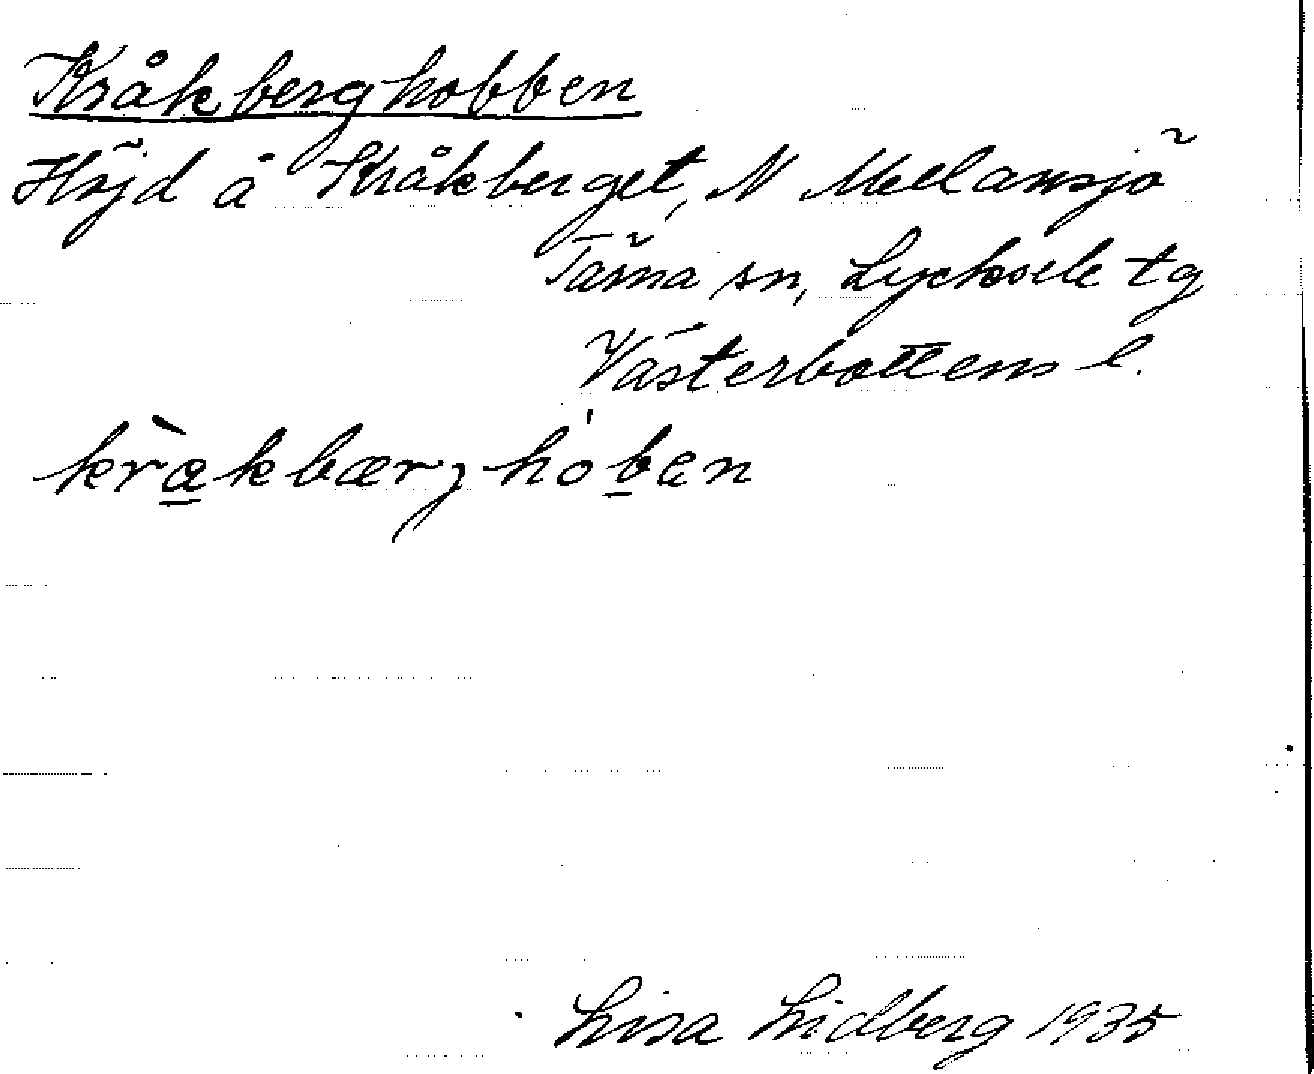 Kråkberghobben
Höjd å Kråkberget, N Mellansjö
Tärna sn, Lycksele tg
Västerbottens l.
kråkbærjhoben
Lisa Lidberg 1935